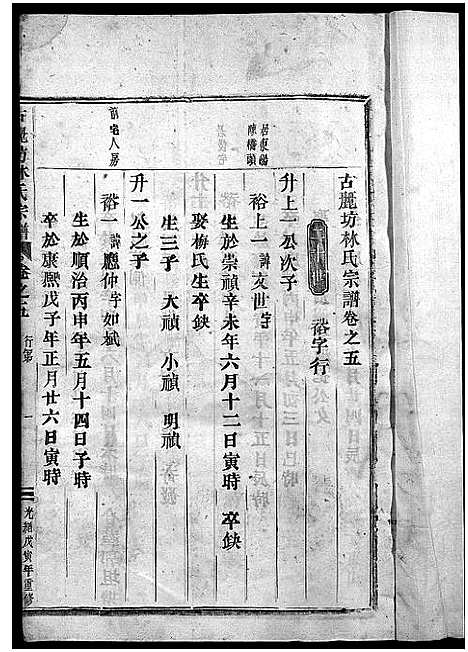 古麗坊林氏宗譜卷之五
裕字行
升上一公次子
居東陽
陳橋頭
裕上一 諱文世 字
生於崇禎辛未年六月十二日寅時 卒缺
娶梅氏生卒缺
生三子 大禎 小禎 明禎
升一公之子
裕一 諱應仲 字如斌
生於順治丙申年五月十四日子時
卒於康熙戊子年正月廿六日寅時
古麗坊林氏宗譜 卷之五 行第 一 光緒戊寅年重修